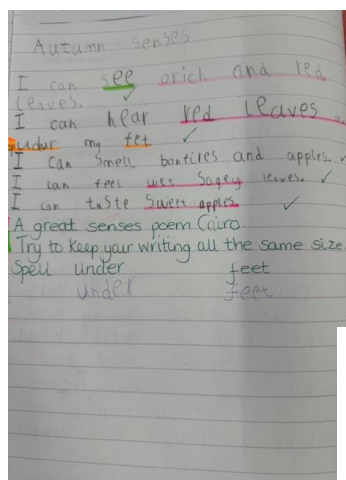 Autumn senses
I can see orich and red
leaves.
I can hear red leaves
undur my fet
I can smell bonfires and apples.
I can feel wet Sogey leaves.
I can taste Sweet apples
A great senses poem Cairo.
Try to keep your writing all the same size
Spell under feet
under feet